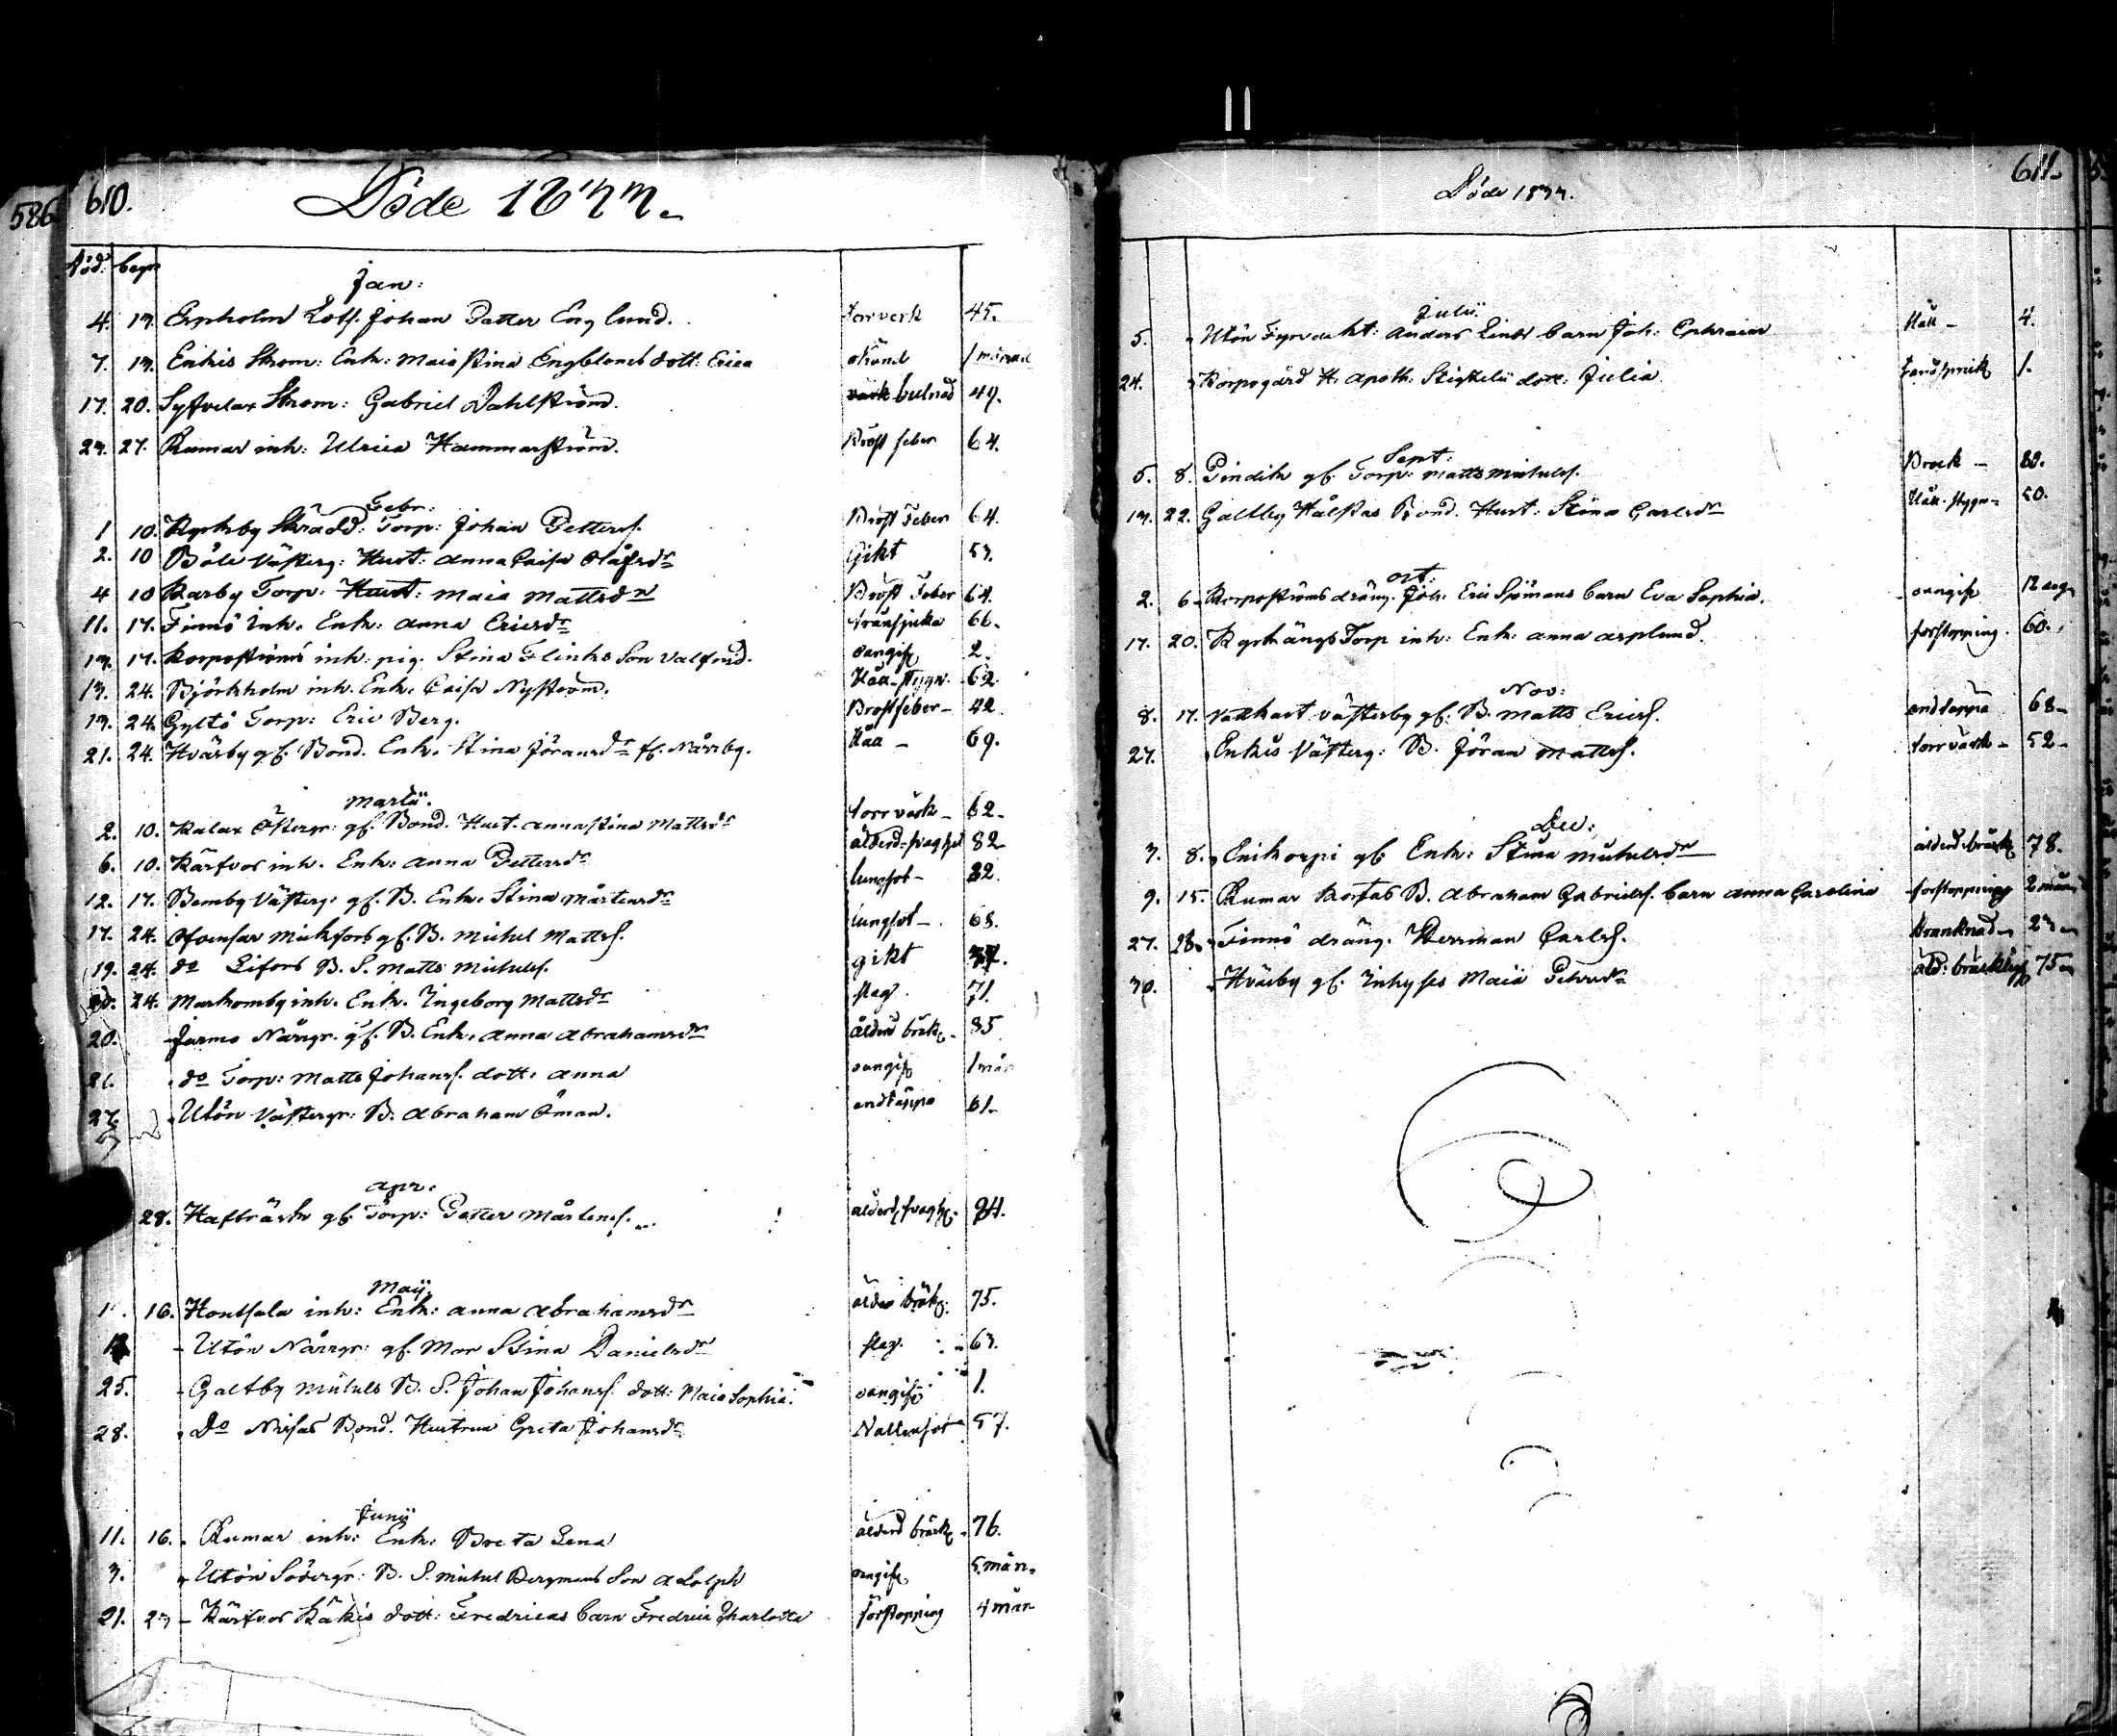 586
610.
Döde 1833.
död. begr.
Jan:
4. 13. Expholm Lots. Johan Petter Englund. torrverk 45.
7. 13. Enkis Skrom: Enk: Maja Stina Engbloms dott: Erica okänd 1 månad
17. 20. Syttvelax Skrom: Gabriel Dahlström. bulnad 49.
23. 27. Rumar inh: Ulrica Hammarström. Bröst feber 64.
Febr:
1 10. Kyrkby Skrädd: Torp: Johan Petterss. Bröst Feber 64.
2. 10 Böle Västerg: Hust: Anna Caisa Olafsdr Gikt 53.
4 10 Karby Torp: Hust: Maia Mattsdr Bröst Feber 64.
11. 17. Finnö Inh. Enk: Anna Ericsdr tränsjuka 66.
13. 17. Korpoströms inh. pig. Stina Flinks Son Valfrid. oangif. 2.
13. 24. Björkholm inh. Enk. Caisa Nyström. Håll-stygn. 62.
13. 24. Gyltö Torp: Eric Berg. Bröstfeber - 42.
21. 24. Hvarby gf. Bond. Enk. Stina Jöransdr fr. Norrby. Håll - 69.
Martii.
2. 10. Kalax Österg: gf. Bond. Hust. Anna Stina Mattsdr torrvärk - 62.
6. 10. Kärfvor inh. Enk: Anna Pettersdr ålderd. svaghet 82
12. 17. Bemby Västerg. gf. B. Enk. Stina Mårtensdr lungsot - 82.
17. 24. Ofvensor Mickfors gf. B. Michel Mattss. lungsot - 68.
19. 24. do Lifors B. S. Matts Michelss. gikt
20. 24. Markomby inh. Enk. Ingeborg Mattsdr slag. 71.
20. Jermo Norrgr. gf. B. Enk. Anna Abrahamsdr ålderd bräk. 85
21. do Torp: Matts Johanss. dott. Anna oangif 1 mån
27. Utön Västergr: B. Abraham Öman. andtäppa 61.
Apr.
28. Hafträsk gf. Torp: Petter Mårtenss. ålderd. svagh. 84.
Maij.
16. Hontsala inh: Enk: Anna Abrahamsdr ålder bräk. 75.
- Utön Norrgr: gf. Mor Stina Danielsdr slag. 63.
25. - Galtby Michels B. S. Johan Johanss. dott: Maia Sophia. oangif 1.
28. Do Nissas Bond. Hustrun Greta Johansdr Vattensot 57.
Junii
11. 16. Rumar inh: Enk: Breta Lena ålderd bräck. 76.
3. Utön Södergr: B. S. Michel Bergmans Son Adolph oangif. 5 mån.
21. 23 - Kärfvor Käkis dott: Fredricas barn Fredrica Charlotta förstopping 4 mån
611.
Döde 1833.
Julii
5. Utön Fyrvakt: Anders Linds barn Joh: Ephraim Håll - 4.
24. Korpogård H. Apoth: dott: Julia tandsprick 1.
Sept:
5. 8. Pindik gf. Torp: Matts Michelss. Bråck - 80.
13. 22. Galtby Hålstas Bond. Hust: Stina Carlsdr Håll-stygn - 50.
Oct:
2. 6 - Korpoströms dräng. Joh: Eric Sjömans barn Eva Sophia. oangif 12 dag.
17. 20. Kyrkängs Torp inh: Enk: Anna Asplund. förstopping. 60.
Nov:
8. 17. Vattkast Västerby gf. B. Matts Ericss. andtäppa 68 -
27. Enkis Västerg: B. Jöran Mattss. torrvärk - 52 -
Dec:
3. 8. Enikorpi gf. Enk: Stina Michelsdr ålderd. bräck 78.
9. 15. Rumar Korstas B. Abraham Gabrielss. barn Anna Carolina förstopping 2 mån
27. 28. Finnö dräng. Herrman Carlss. 23 -
30. - Hväsby gf. Inhyses Maia Petersdr åld: bräcklig 75 -